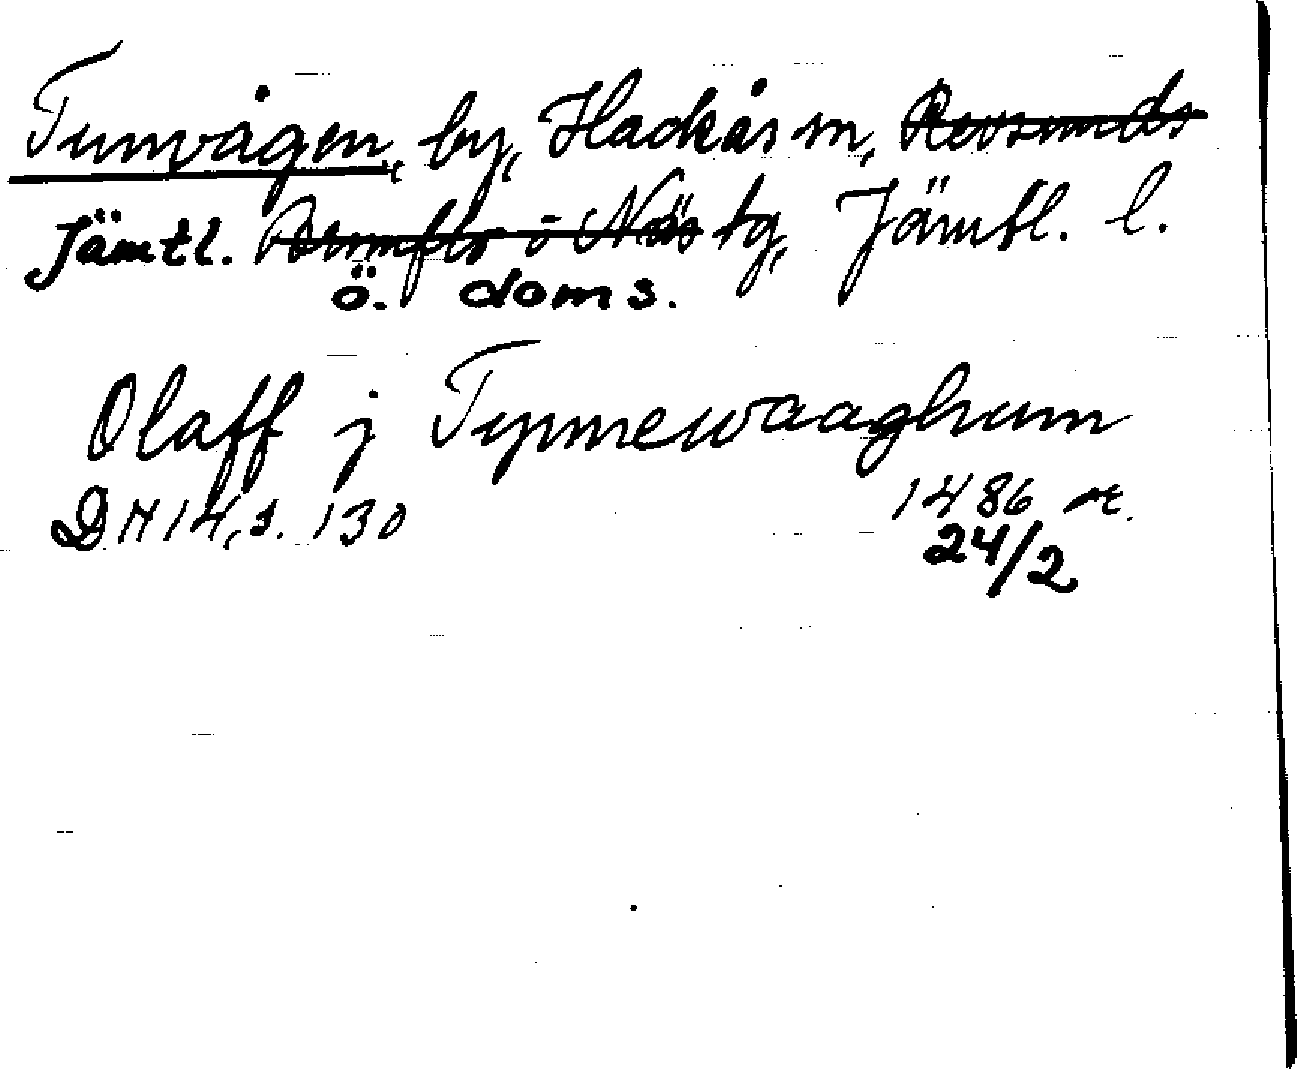 Tunvågen, by, Hackås sn, Revsunds
Jämtl. Brunflo o Näs tg, Jämtl. l.
ö. doms.
Olaff j Tynnewaaghum
DN 14, s. 130 1486 or.
24/2